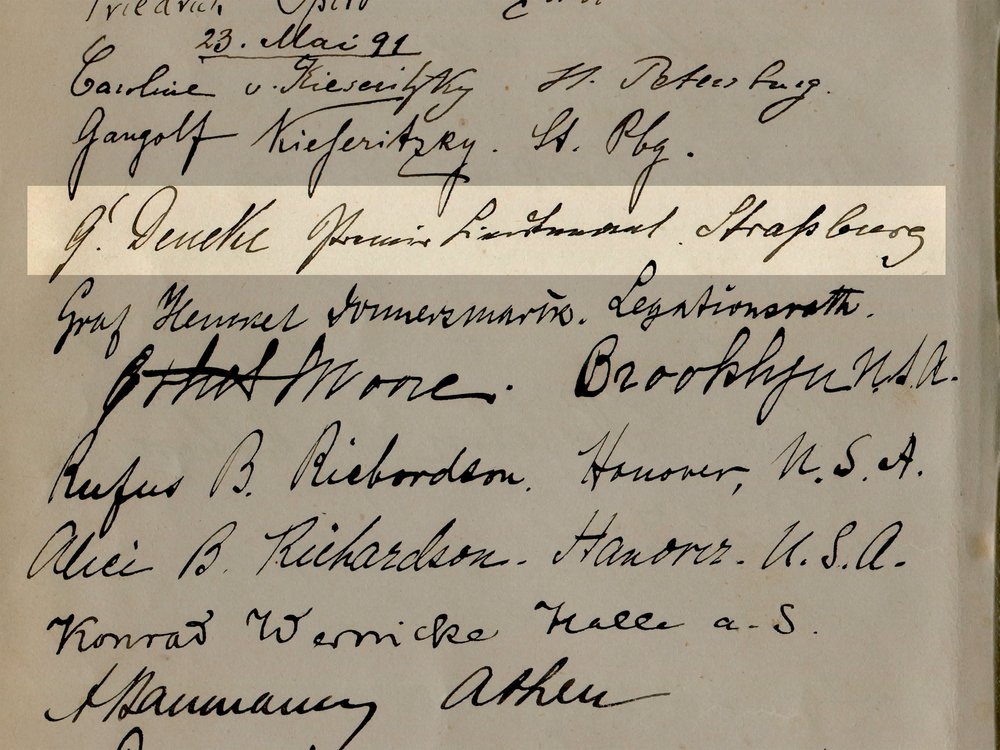 Friedrich
23. Mai 91
Caroline v. Kieseritzky St. Petersburg.
Gangolf Kieseritzky. St. Pbg.
G. Deneke Premier Lieutenant. Straßburg
Graf Henckel Donnersmarck. Legationsrath.
Ethel Moore. Brooklyn U.S.A.
Rufus B. Richardson. Hanover, U.S.A.
Alice B. Richardson. Hanover. U.S.A.
Konrad Wernicke Halle a. S.
A Baumann Athen